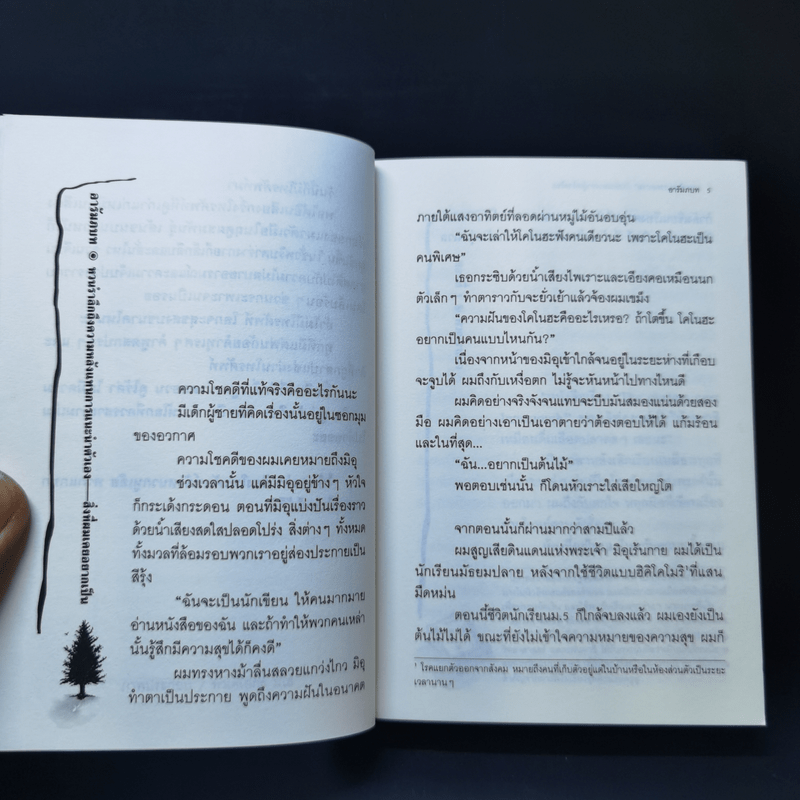 อารัมภบท ๏ พาพร่ำลึกถึงความหลังแทนการแนะนำตัวเอง——สิ่งที่ผมเคยอยากเป็น
ความโชคดีที่แท้จริงคืออะไรกันนะ
มีเด็กผู้ชายที่คิดเรื่องนั้นอยู่ในซอกมุม
ของอวกาศ
ความโชคดีของผมเคยหมายถึงมิอุ
ช่วงเวลานั้น แค่มีมิอุอยู่ข้างๆ หัวใจ
ก็กระเด้งกระดอน ตอนที่มิอุแบ่งปันเรื่องราว
ด้วยน้ำเสียงสดใสปลอดโปร่ง สิ่งต่างๆ ทั้งหมด
ทั้งมวลที่ล้อมรอบพวกเราอยู่ส่องประกายเป็น
สีรุ้ง
“ฉันจะเป็นนักเขียน ให้คนมากมาย
อ่านหนังสือของฉัน และถ้าทำให้พวกคนเหล่า
นั้นรู้สึกมีความสุขได้ก็คงดี”
ผมทรงหางม้าลื่นสลวยแกว่งไกว มิอุ
ทำตาเป็นประกาย พูดถึงความฝันในอนาคต
อารัมภบท 5
ภายใต้แสงอาทิตย์ที่ลอดผ่านหมู่ไม้อันอบอุ่น
“ฉันจะเล่าให้โคโนฮะฟังคนเดียวนะ เพราะโคโนฮะเป็น
คนพิเศษ”
เธอกระซิบด้วยน้ำเสียงไพเราะและเอียงคอเหมือนนก
ตัวเล็กๆ ทำตาราวกับจะยั่วเย้าแล้วจ้องผมเขม็ง
“ความฝันของโคโนฮะคืออะไรเหรอ? ถ้าโตขึ้น โคโนฮะ
อยากเป็นคนแบบไหนกัน?”
เนื่องจากหน้าของมิอุเข้าใกล้จนอยู่ในระยะห่างที่เกือบ
จะจูบได้ ผมถึงกับเหงื่อตก ไม่รู้จะหันหน้าไปทางไหนดี
ผมคิดอย่างจริงจังจนแทบจะบีบมันสมองแน่นด้วยสอง
มือ ผมคิดอย่างเอาเป็นเอาตายว่าต้องตอบให้ได้ แก้มร้อน
และในที่สุด...
“ฉัน...อยากเป็นต้นไม้”
พอตอบเช่นนั้น ก็โดนหัวเราะใส่เสียใหญ่โต
จากตอนนั้นก็ผ่านมากว่าสามปีแล้ว
ผมสูญเสียดินแดนแห่งพระเจ้า มิอุเร้นกาย ผมได้เป็น
นักเรียนมัธยมปลาย หลังจากใช้ชีวิตแบบฮิคิโคโมริ¹ที่แสน
มืดหม่น
ตอนนี้ชีวิตนักเรียนม.5 ก็ใกล้จบลงแล้ว ผมเองยังเป็น
ต้นไม้ไม่ได้ ขณะที่ยังไม่เข้าใจความหมายของความสุข ผมก็
¹ โรคแยกตัวออกจากสังคม หมายถึงคนที่เก็บตัวอยู่แต่ในบ้านหรือในห้องส่วนตัวเป็นระยะ
เวลานานๆ